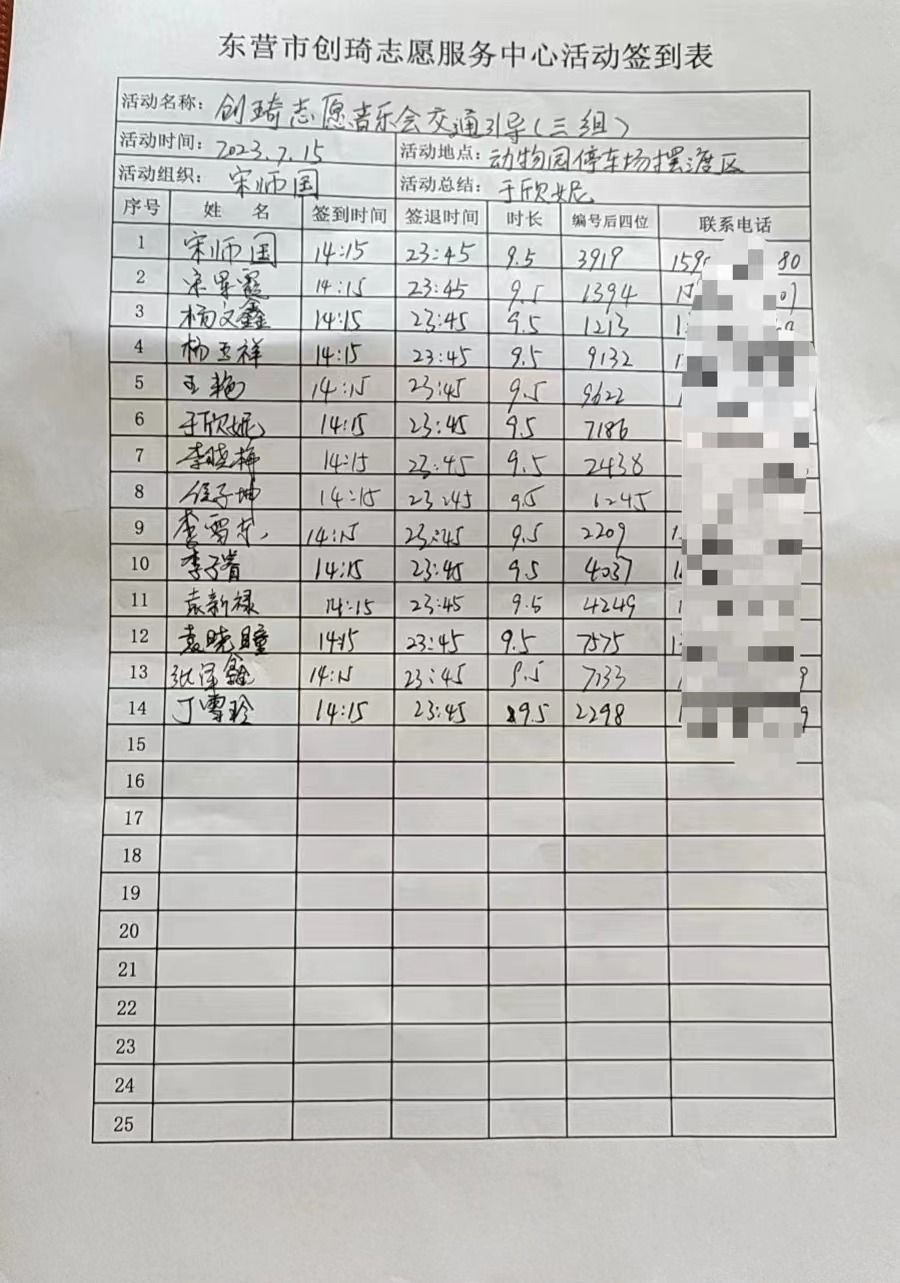 东营市创琦志愿服务中心活动签到表
活动名称: 创琦志愿音乐会交通引导(三组)
活动时间: 2023.7.15 活动地点: 动物园停车场摆渡区
活动组织: 宋师国 活动总结: 于欣妮
序号 姓 名 签到时间 签退时间 时长 编号后四位 联系电话
1 宋师国 14:15 23:45 9.5 3919 159 80
2 14:15 23:45 9.5 1394
3 杨文鑫 14:15 23:45 9.5 1213
4 杨玉祥 14:15 23:45 9.5 9132
5 王艳 14:15 23:45 9.5 9622
6 于欣妮 14:15 23:45 9.5 7186
7 李晓梅 14:15 23:45 9.5 2438
8 任子坤 14:15 23:45 9.5 6245
9 李雪东 14:15 23:45 9.5 2209
10 李子睿 14:15 23:45 9.5 4037
11 袁新禄 14:15 23:45 9.5 4249
12 袁晓瞳 14:15 23:45 9.5 7575
13 14:15 23:45 9.5 7133 9
14 丁雪玲 14:15 23:45 9.5 2298 9
15
16
17
18
19
20
21
22
23
24
25